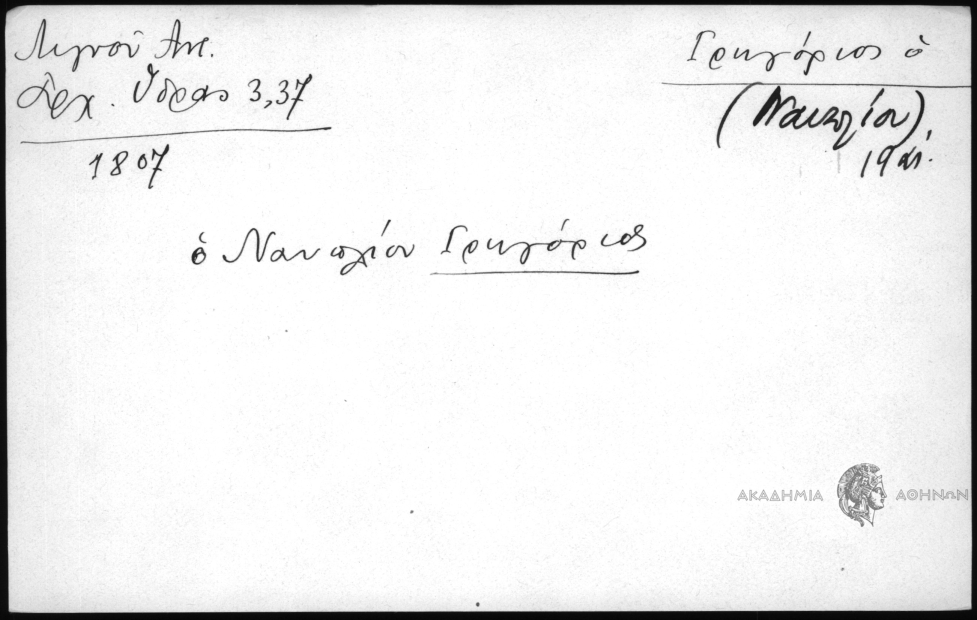 Λιγνοῦ Ἀντ.
Ἀρχ. Ὕδρας 3,37
1807
Γρηγόριος ὁ
(Ναυπλίου)
19 αἰ.
ὁ Ναυπλίου Γρηγόριος
ΑΚΑΔΗΜΙΑ ΑΘΗΝΩΝ